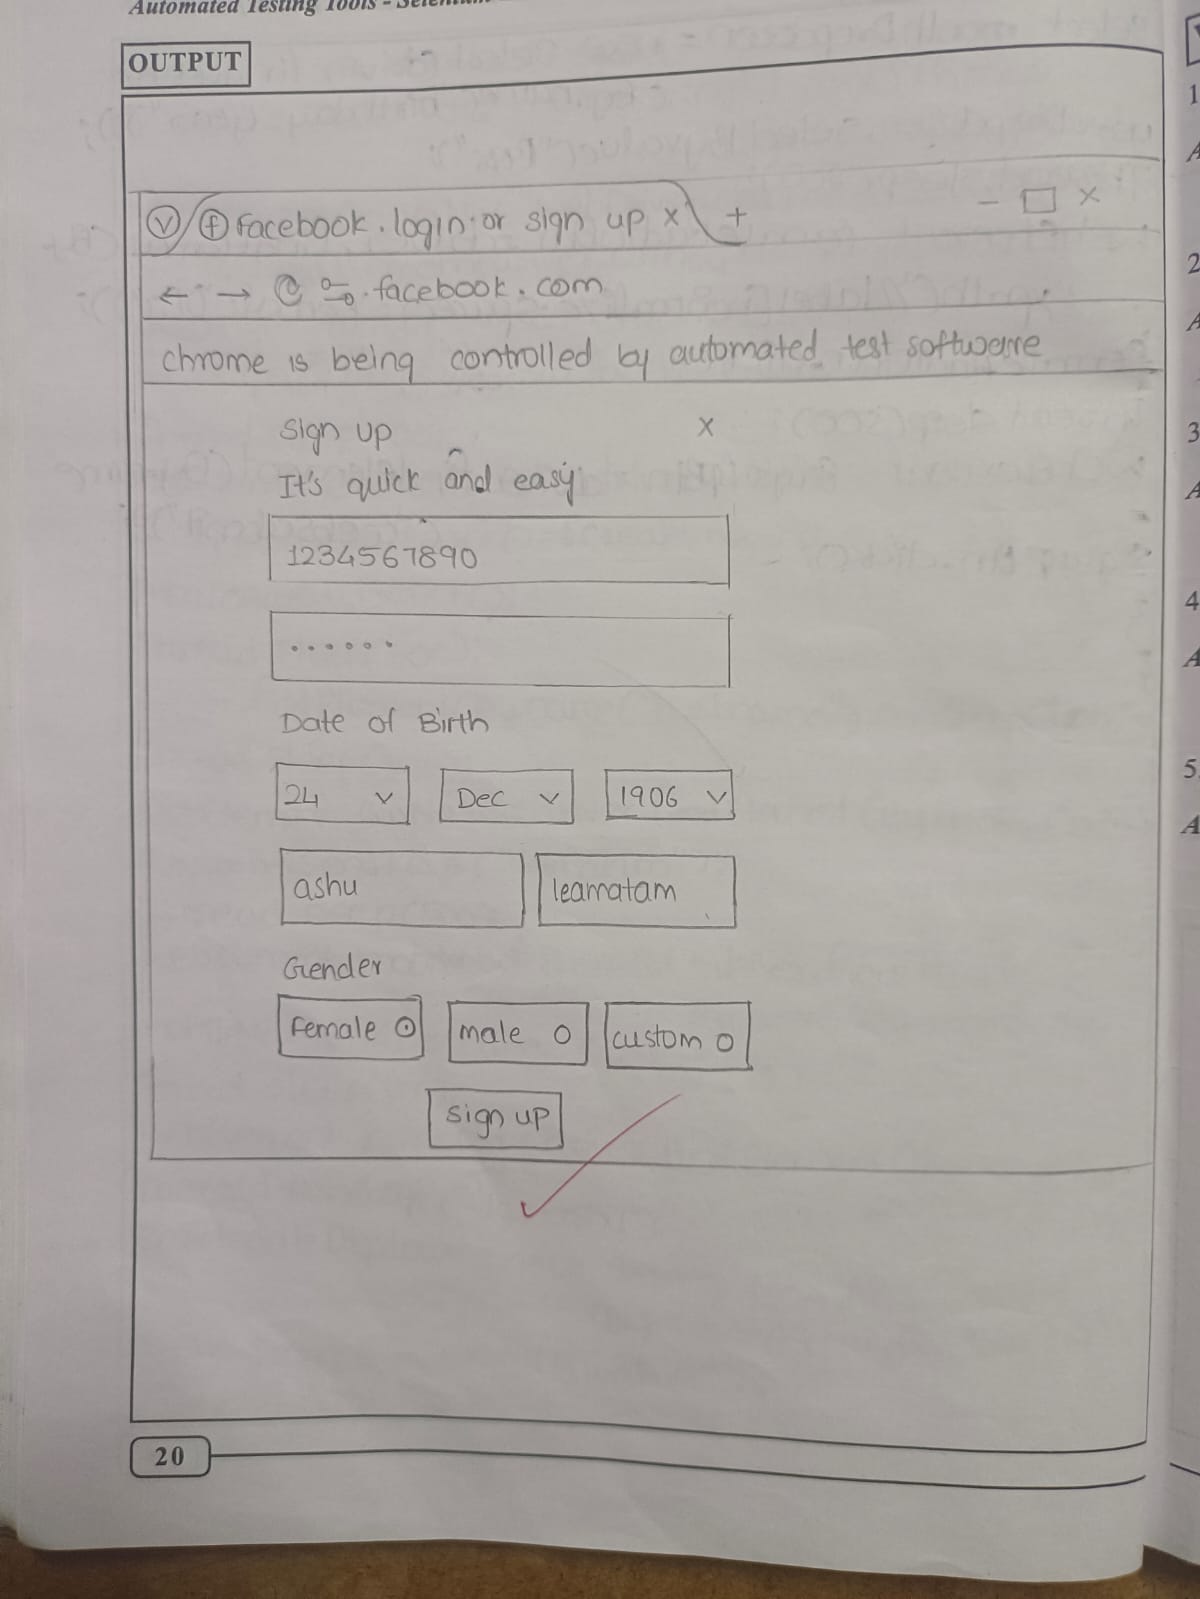 Automated Testing Tools - Selenium
OUTPUT
facebook . login or sign up x +
- x
← → facebook . com
chrome is being controlled by automated test software
Sign up x
It's quick and easy
1234567890
......
Date of Birth
24 Dec 1906
ashu leamatam
Gender
Female male custom
sign up
20
1
A
2
A
3
A
4
A
5.
A